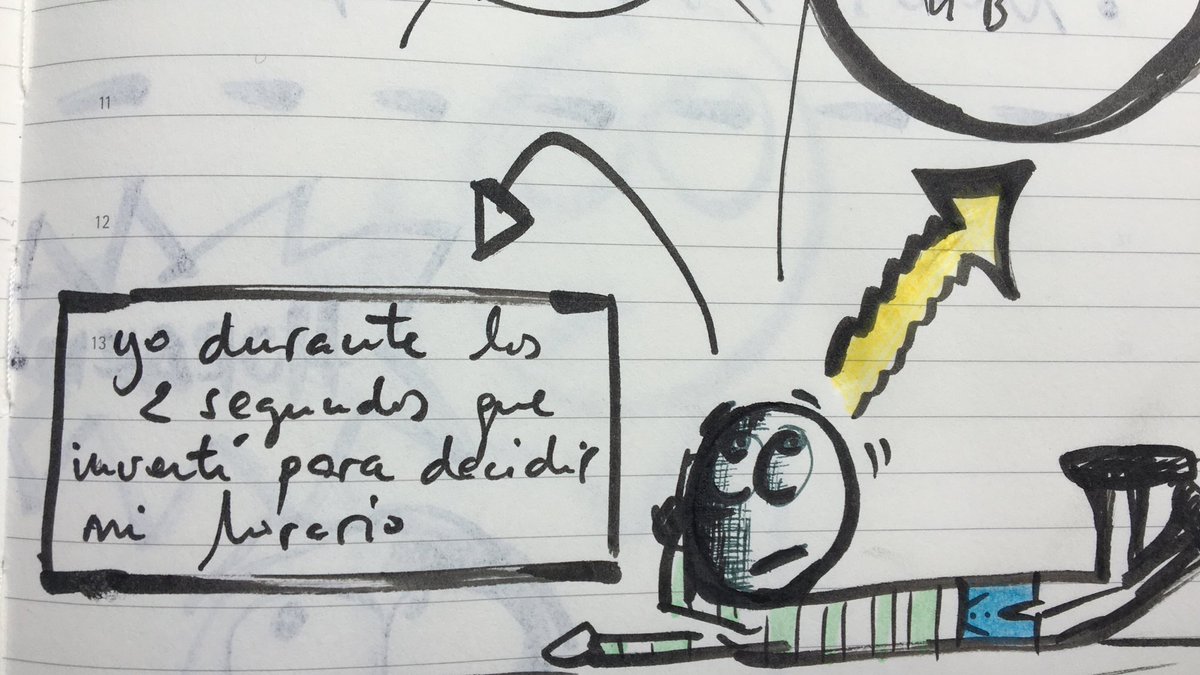 11
12
13
yo durante los
2 segundos que
invertí para decidir
mi horario